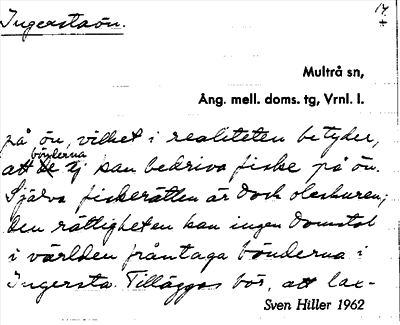 Ingerstaön.
17.
Multrå sn,
Ång. mell. doms. tg, Vrnl. l.
på ön, vilket i realiteten betyder,
bönderna
att de ej kan bedriva fiske på ön.
Själva fiskerätten är dock oleskuren;
den rättigheten kan ingen domstol
i världen fråntaga bönderna i
Ingersta. Tilläggas bör, att lax-
Sven Hiller 1962